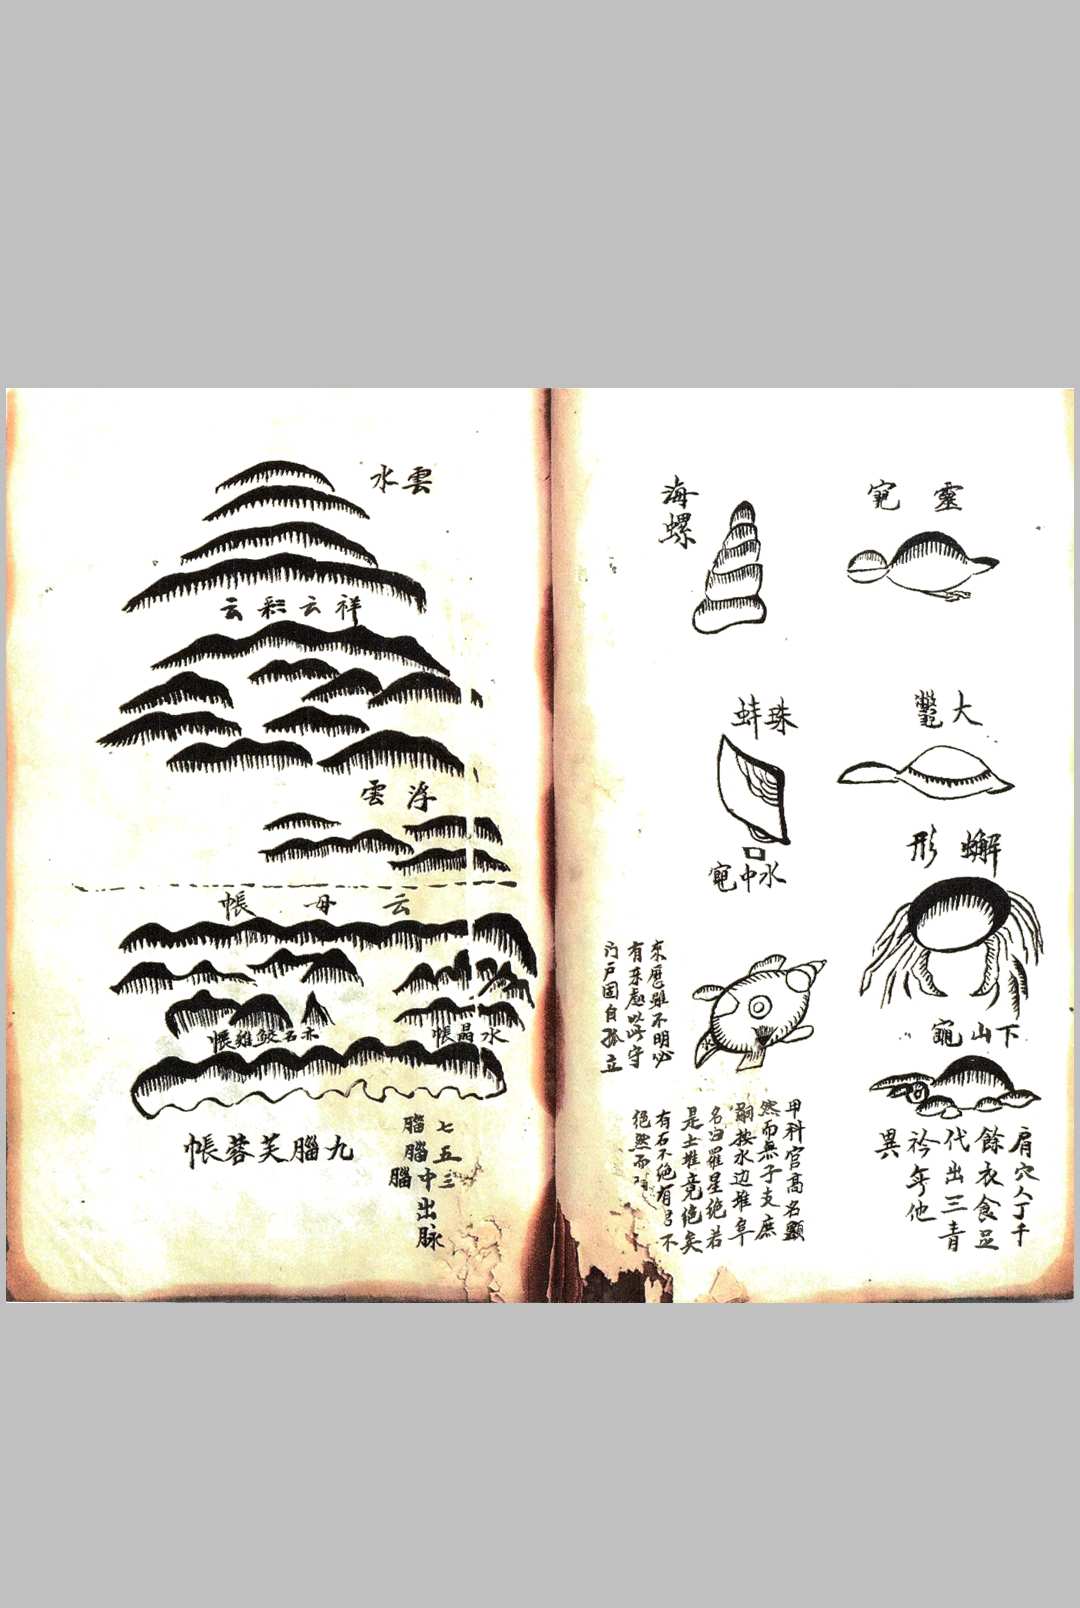 靈龟
海螺
大鼈
珠蚌
蠏形
水中龟
下山龟
肩穴人丁千
餘衣食足
代出三青
衿年他
異
甲科官高名顯
然而無子支庶
嗣按水边堆阜
名曰羅星绝若
是土堆竟绝矣
有石不绝有弓不
绝然而
來歷雖不明必
有來處以此守
门户固自孤立
雲水
祥云彩云
浮雲
云母帳
水晶帳
亦名鮫雞帳
九腦芙蓉帳
七腦
五腦
三腦
中出脉